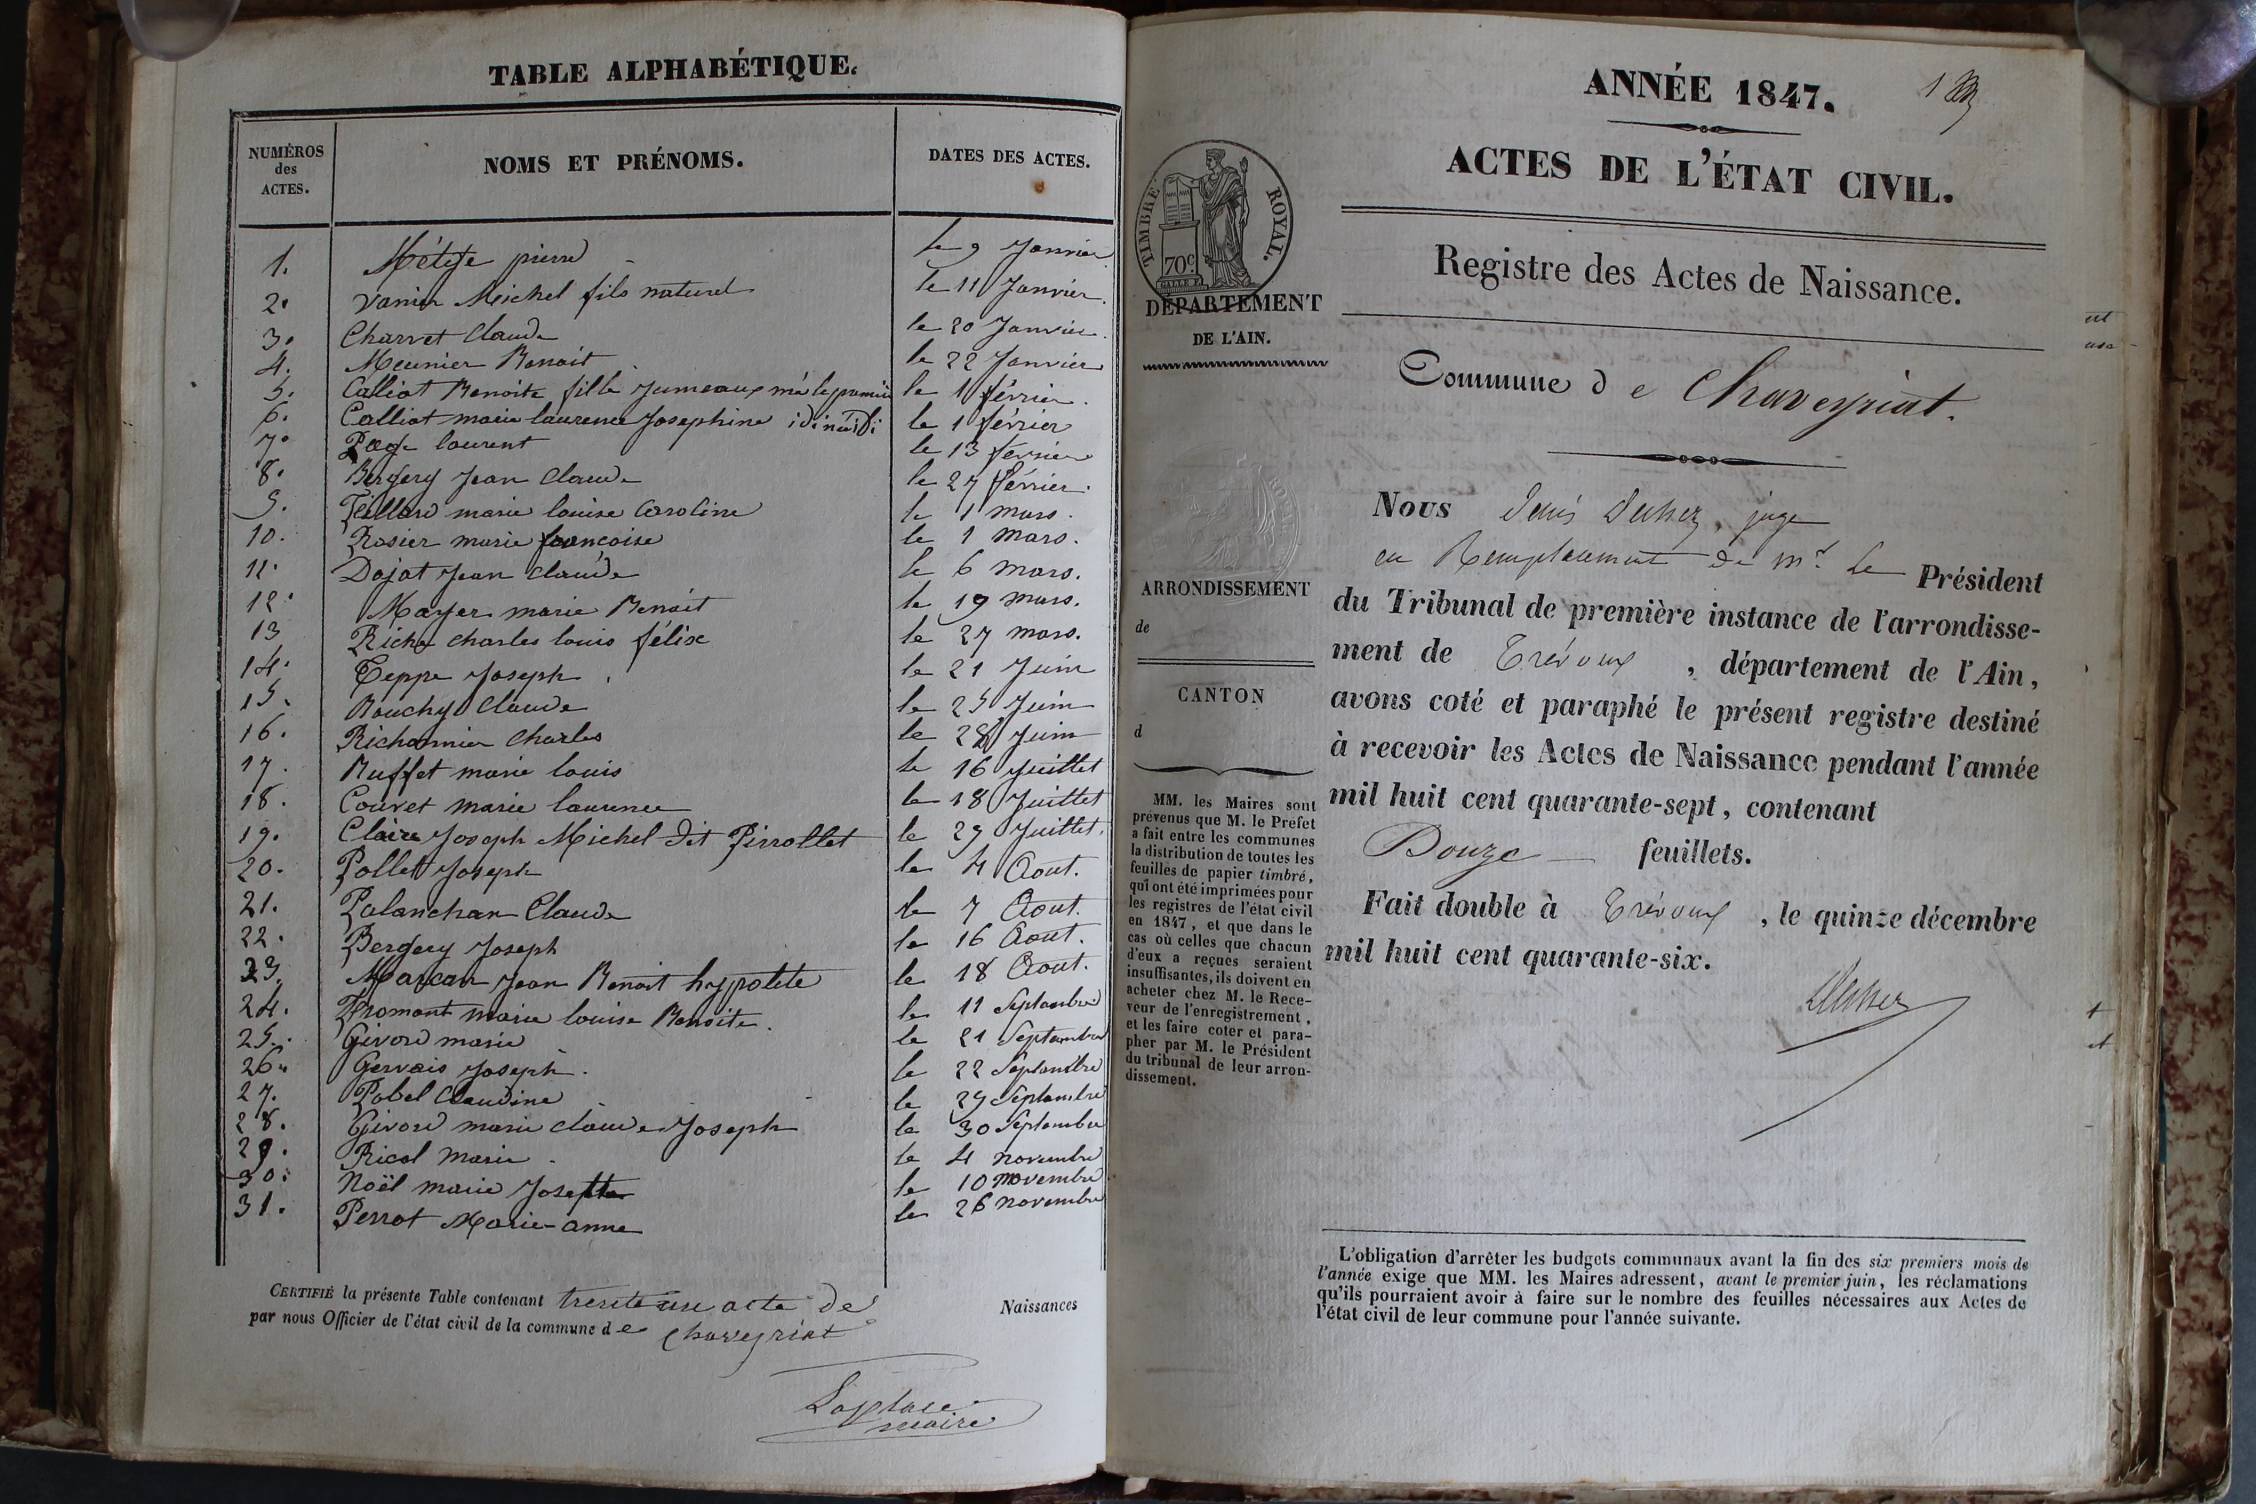 TABLE ALPHABÉTIQUE.
NUMÉROS
des
ACTES.
NOMS ET PRÉNOMS.
DATES DES ACTES.
1. pierre le 9 Janvier
2. Vanier Michel fils naturel le 11 Janvier.
3. Charvet Claude le 20 Janvier.
4. Meunier Benoit le 22 Janvier
5. Calliat Benoite fille Jumeaux le 1 février.
6. Calliat marie laurence Josephine le 1 février
7. Page laurent le 13 février
8. Bergery Jean Claude le 27 février.
9. marie louise Caroline le 1 mars.
10. Rosier marie francoise le 1 mars.
11. Dojat Jean claude le 6 mars.
12. Mayer marie Benoit le 19 mars.
13 Riche charles louis félix le 27 mars.
14. Teppe Joseph le 21 Juin
15. Bouchy Claude le 25 Juin
16. Richonnier Charles le 28 Juin
17. Buffet marie louis le 16 Juillet
18. Couvet marie laurence le 18 Juillet
19. Claire Joseph Michel dit Pirrollet le 29 Juillet.
20. Pollet Joseph le 4 Aout.
21. Palanchan Claude le 7 Aout.
22. Bergery Joseph le 16 Aout.
23. Marcan Jean Benoit hyppolite le 18 Aout.
24. Fromont marie louise Benoite. le 11 Septembre
25. Givord marie le 21 Septembre
26. Gervais Joseph. le 22 Septembre
27. Pobel Claudine le 29 Septembre
28. Givord marie claude Joseph le 30 Septembre
29. Ricol marie le 4 novembre
30. Noël marie Josephte le 10 novembre
31. Perrot Marie-anne le 26 novembre
CERTIFIÉ la présente Table contenant trente une acte de Naissances
par nous Officier de l'état civil de la commune de Chaveyriat
Laplace
maire
ANNÉE 1847.
1
ACTES DE L'ÉTAT CIVIL.
Registre des Actes de Naissance.
TIMBRE ROYAL.
70c
DÉPARTEMENT
DE L'AIN.
Commune de Chaveyriat.
ARRONDISSEMENT
de
CANTON
d
MM. les Maires sont
prévenus que M. le Préfet
a fait entre les communes
la distribution de toutes les
feuilles de papier timbré,
qui ont été imprimées pour
les registres de l'état civil
en 1847, et que dans le
cas où celles que chacun
d'eux a reçues seraient
insuffisantes, ils doivent en
acheter chez M. le Rece-
veur de l'enregistrement,
et les faire coter et para-
pher par M. le Président
du tribunal de leur arron-
dissement.
Nous Denis juge
en Remplacement de mr. le Président
du Tribunal de première instance de l'arrondisse-
ment de Trévoux, département de l'Ain,
avons coté et paraphé le présent registre destiné
à recevoir les Actes de Naissance pendant l'année
mil huit cent quarante-sept, contenant
Douze feuillets.
Fait double à Trévoux, le quinze décembre
mil huit cent quarante-six.
L'obligation d'arrêter les budgets communaux avant la fin des six premiers mois de
l'année exige que MM. les Maires adressent, avant le premier juin, les réclamations
qu'ils pourraient avoir à faire sur le nombre des feuilles nécessaires aux Actes de
l'état civil de leur commune pour l'année suivante.